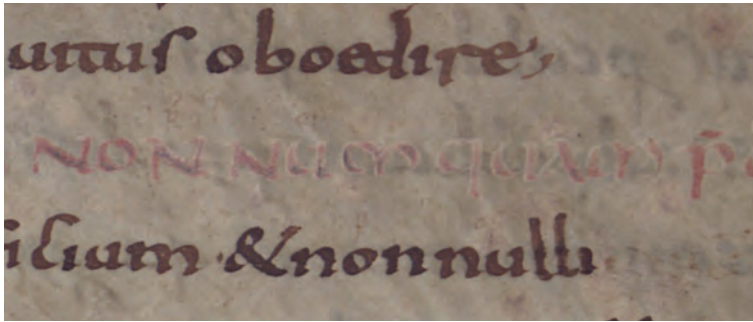 uitus oboedire,
NON NUM quam p̄
ilium & nonnulli